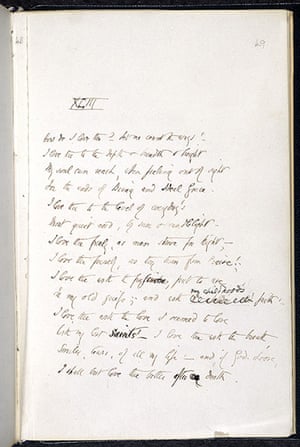 49
XLIII
How do I love thee? Let me count the ways!
I love thee to the depth & breadth & height
My soul can reach, when feeling out of sight
For the ends of Being and Ideal Grace.
I love thee to the level of everyday's
Most quiet need, by sun & candlelight.
I love thee freely, as men strive for Right,—
I love thee purely, as they turn from Praise!
I love thee with the passion, put to use
In my old griefs; and with my childhood's faith!
I love thee with the love I seemed to lose
With my lost Saints! — I love thee with the breath
Smiles, tears, of all my life — and, if God choose,
I shall but love thee better after death.